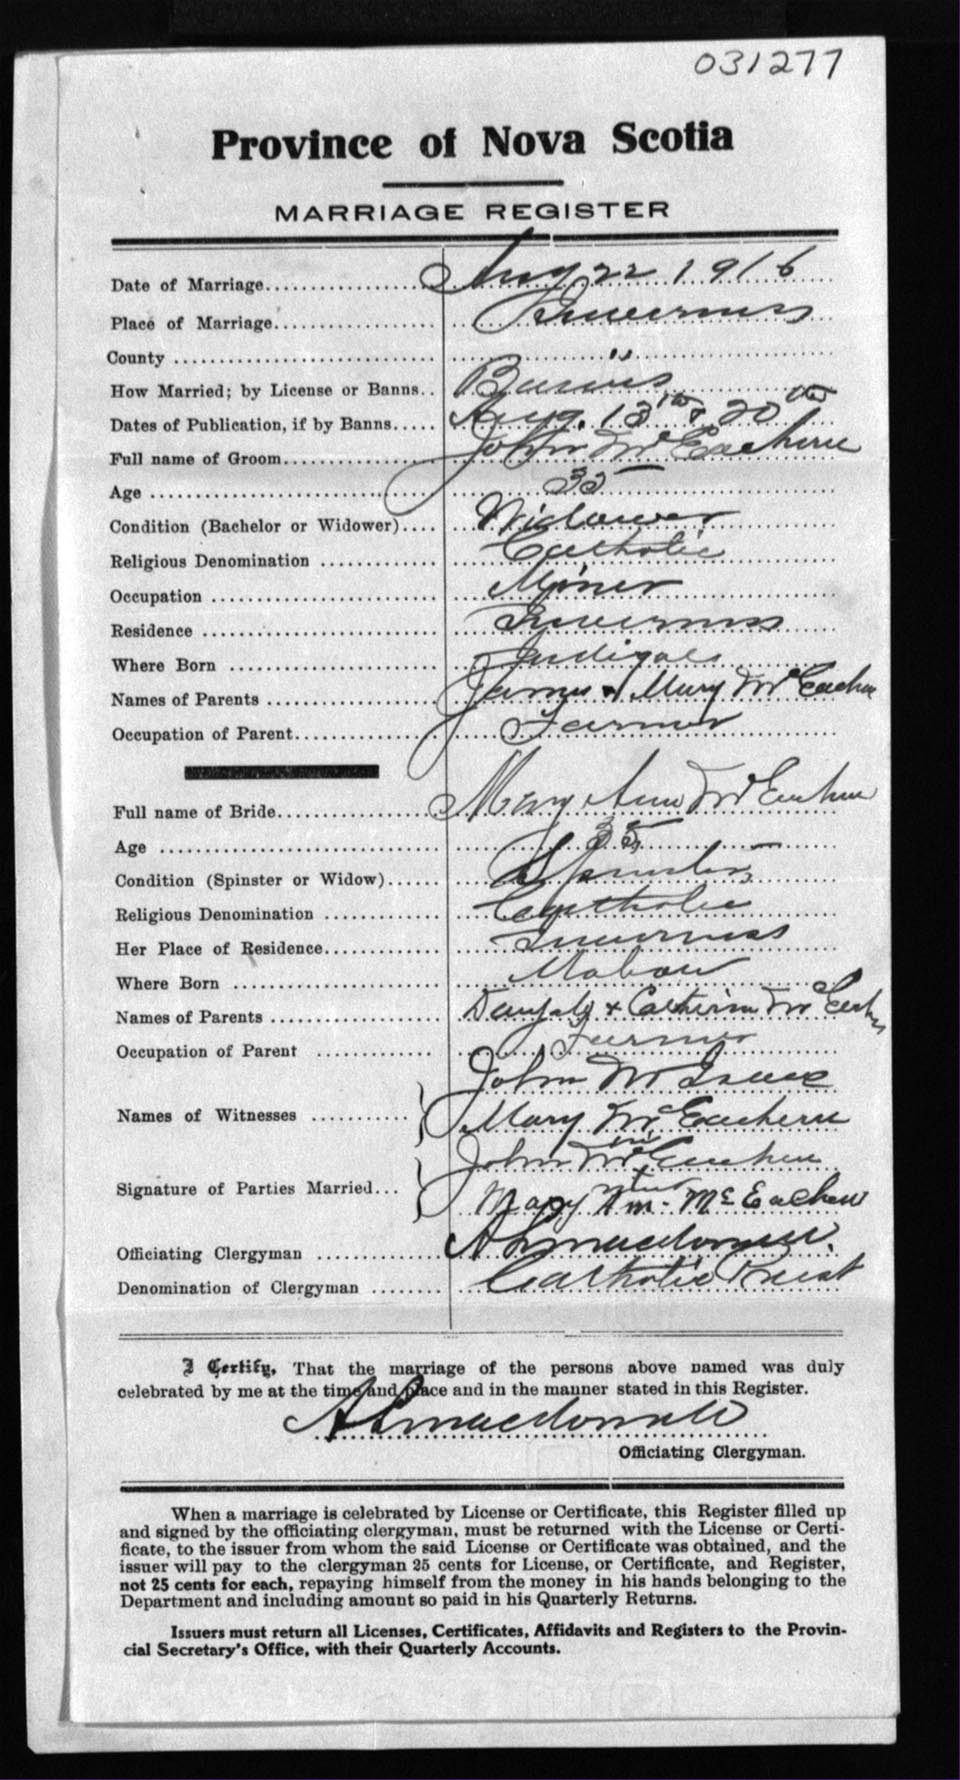 031277
Province of Nova Scotia
MARRIAGE REGISTER
Date of Marriage Aug 22 1916
Place of Marriage Inverness
County "
How Married; by License or Banns Banns
Dates of Publication, if by Banns Aug. 13th & 20th
Full name of Groom John McEachern
Age 35
Condition (Bachelor or Widower) Widower
Religious Denomination Catholic
Occupation Miner
Residence Inverness
Where Born Judique
Names of Parents James & Mary McEachern
Occupation of Parent Farmer
Full name of Bride Mary Ann McEachern
Age 35
Condition (Spinster or Widow) Spinster
Religious Denomination Catholic
Her Place of Residence Inverness
Where Born Mabou
Names of Parents & Catherine McEachern
Occupation of Parent Farmer
John McIsaac
Names of Witnesses
Mary McEachern
John McEachern
Signature of Parties Married
Mary Ann McEachern
Officiating Clergyman A L Macdonald.
Denomination of Clergyman Catholic Priest
I Certify, That the marriage of the persons above named was duly
celebrated by me at the time and place and in the manner stated in this Register.
A L Macdonald
Officiating Clergyman.
When a marriage is celebrated by License or Certificate, this Register filled up
and signed by the officiating clergyman, must be returned with the License or Certi-
ficate, to the issuer from whom the said License or Certificate was obtained, and the
issuer will pay to the clergyman 25 cents for License, or Certificate, and Register,
not 25 cents for each, repaying himself from the money in his hands belonging to the
Department and including amount so paid in his Quarterly Returns.
Issuers must return all Licenses, Certificates, Affidavits and Registers to the Provin-
cial Secretary's Office, with their Quarterly Accounts.